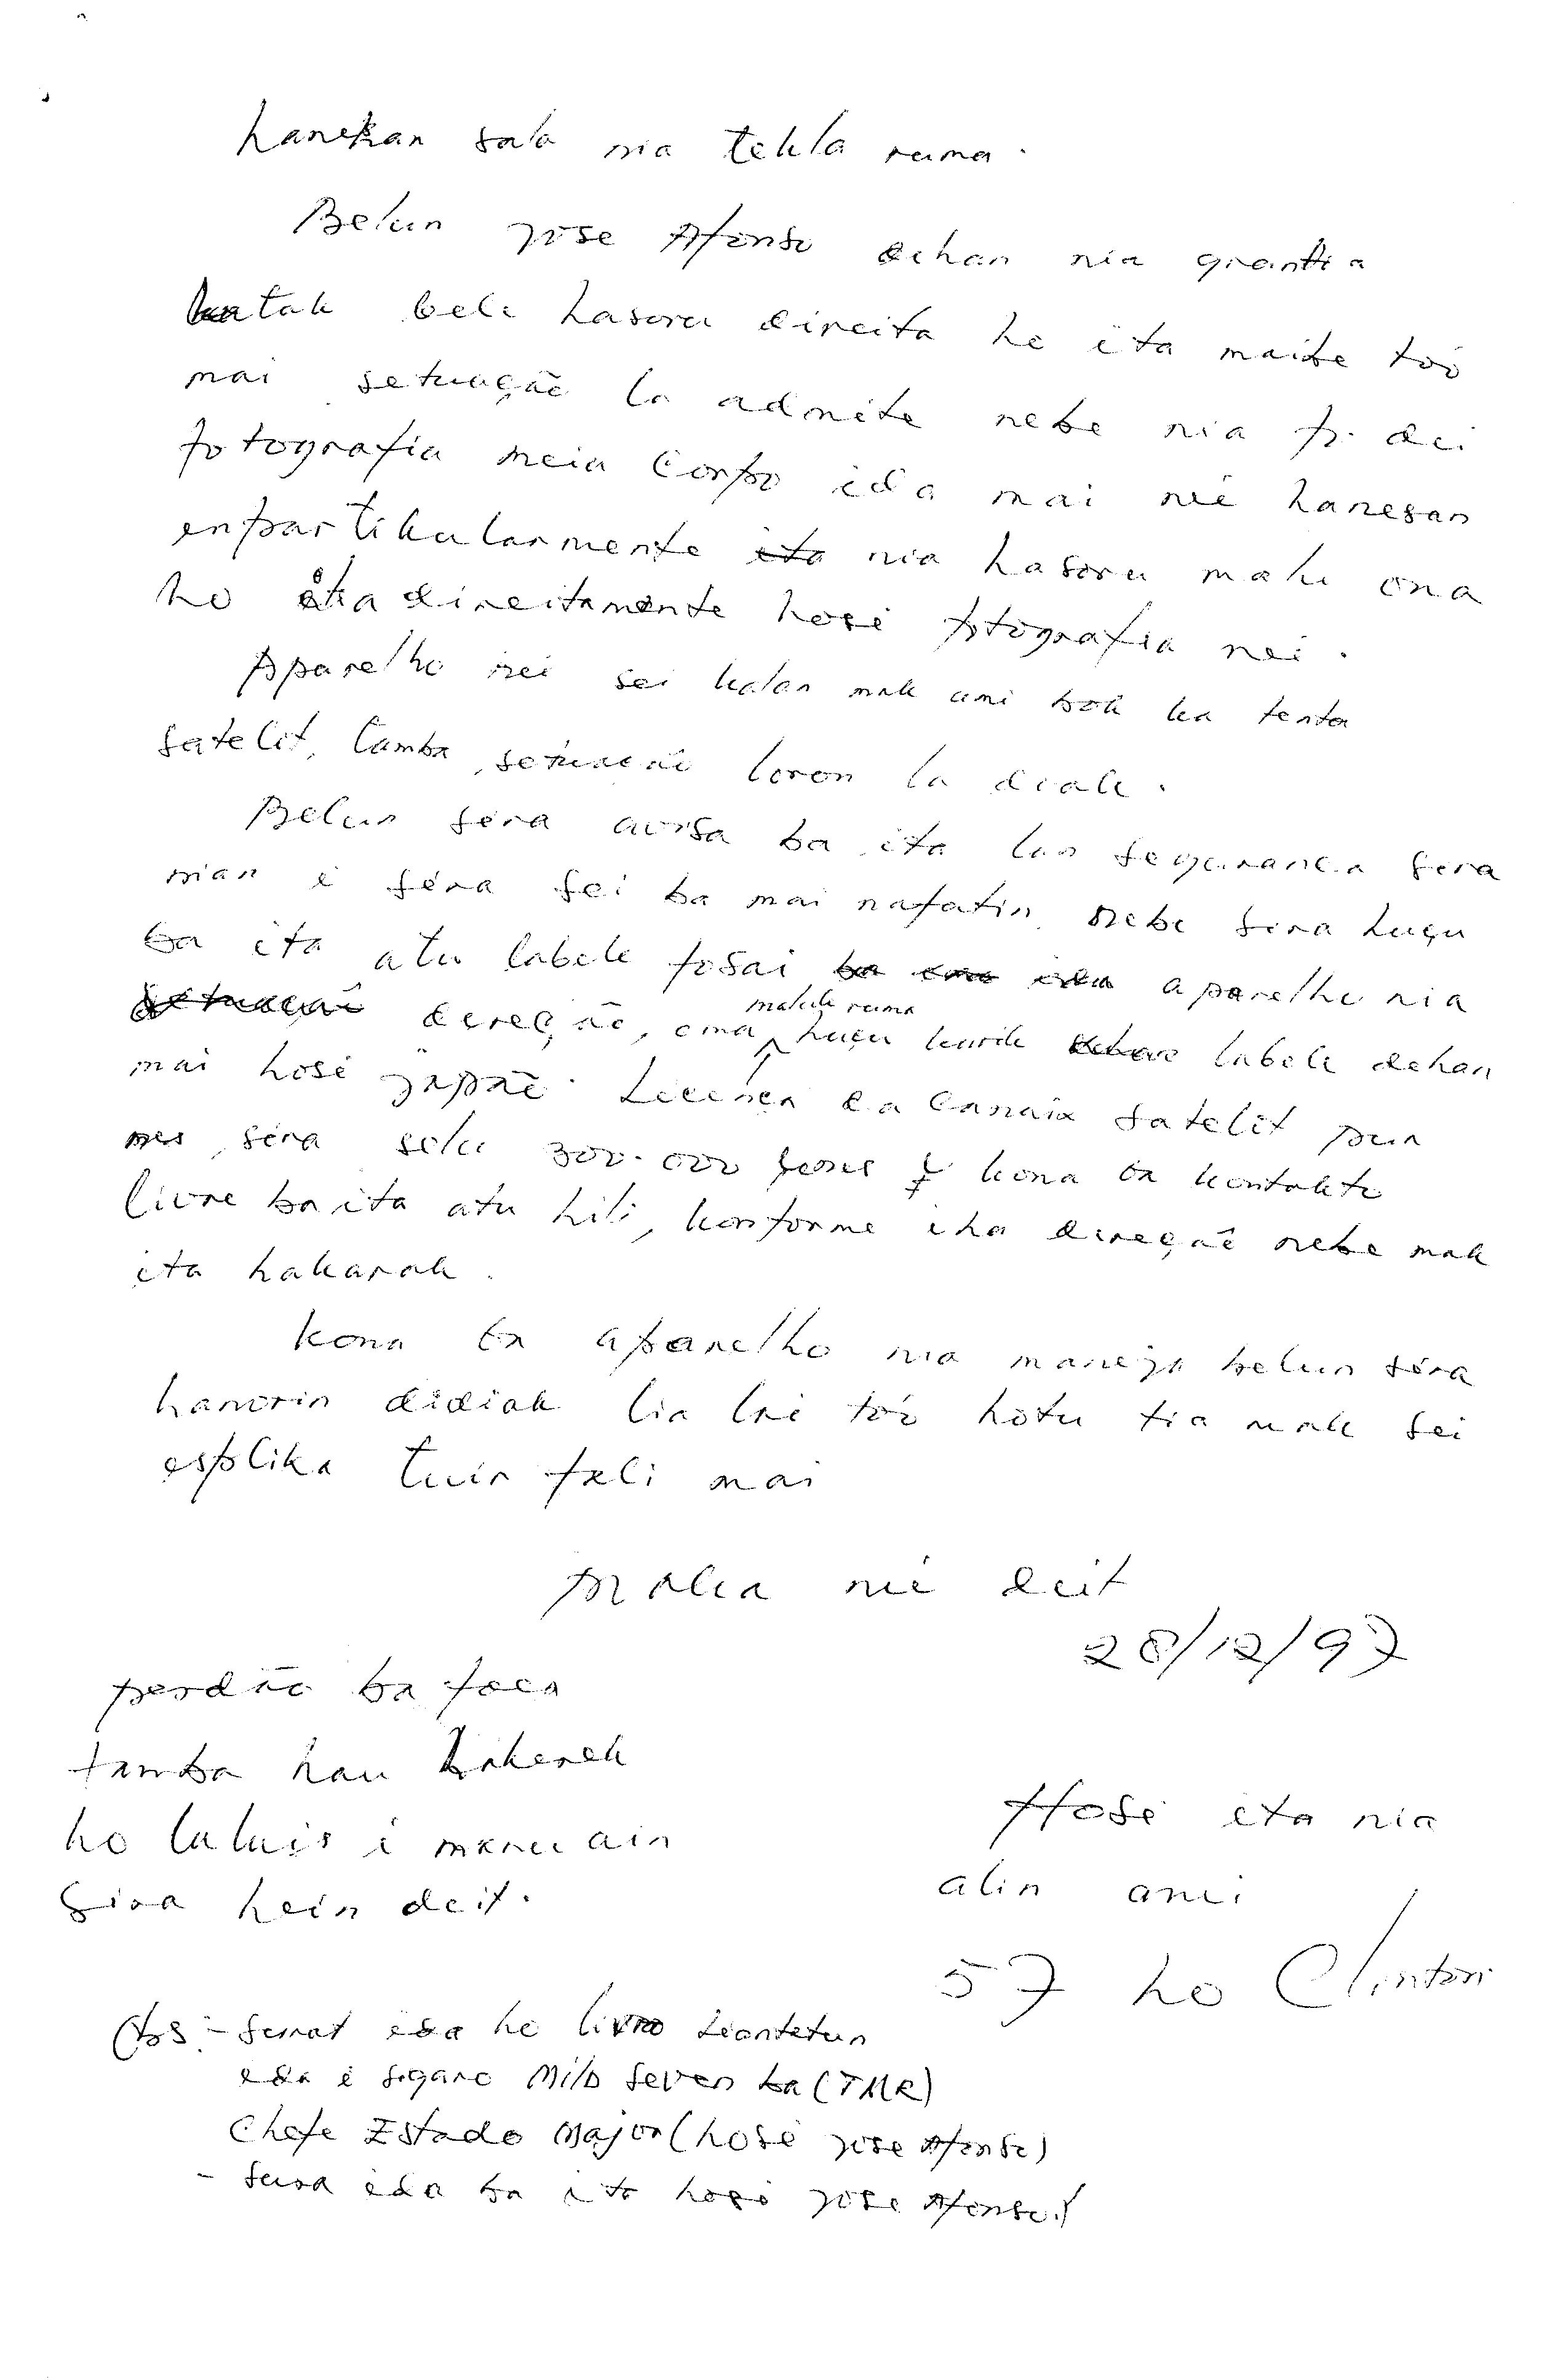 hanesan sala nia tekla ruma.
Belun Jose Afonso dehan nia grantia
katak bele hasoru direita ho ita maibe toó
mai setuação la admite nebe nia fo dei
fotografia meia Corpo ida mai neé hanesan
enpartikularmente nia hasoru malu ona
ho ita direitamente hosé fotografia neé.
Aparelho neé sei kalan mak ami book ka tenta
satelit, tamba setuação loron la diak.
Belun séra avisa ba ita kan segurança séra
nian é séra sei ba mai nafatin, nebe séra huçu
ba ita atu labele fosai aparelho nia
dereção, ema maluk ruma huçu karik labele dehan
mai hosé Japaõ. Licença ba Canaix satelit
séra selu 300.000 kona ba kontakto
livre ba ita atu hili, konforme iha direção nebe mak
ita hakarak.
kona ba aparelho nia maneja belun séra
hanorin didiak lia laé toó hotu tia mak sei
esplika tuir fali mai
Maka neé deit
28/12/97
perdão ba
tamba hau hakerek
ho lalais é manu ain
sira hein deit.
Hosé ita nia
alin ami
57 ho Clinton
Obs: - surat ida ho livro
ida é sigaro Mild Seven ba (TMR)
Chefe Estado Major (hosé Jose Afonso)
- ida ba ita hosé Jose Afonso.